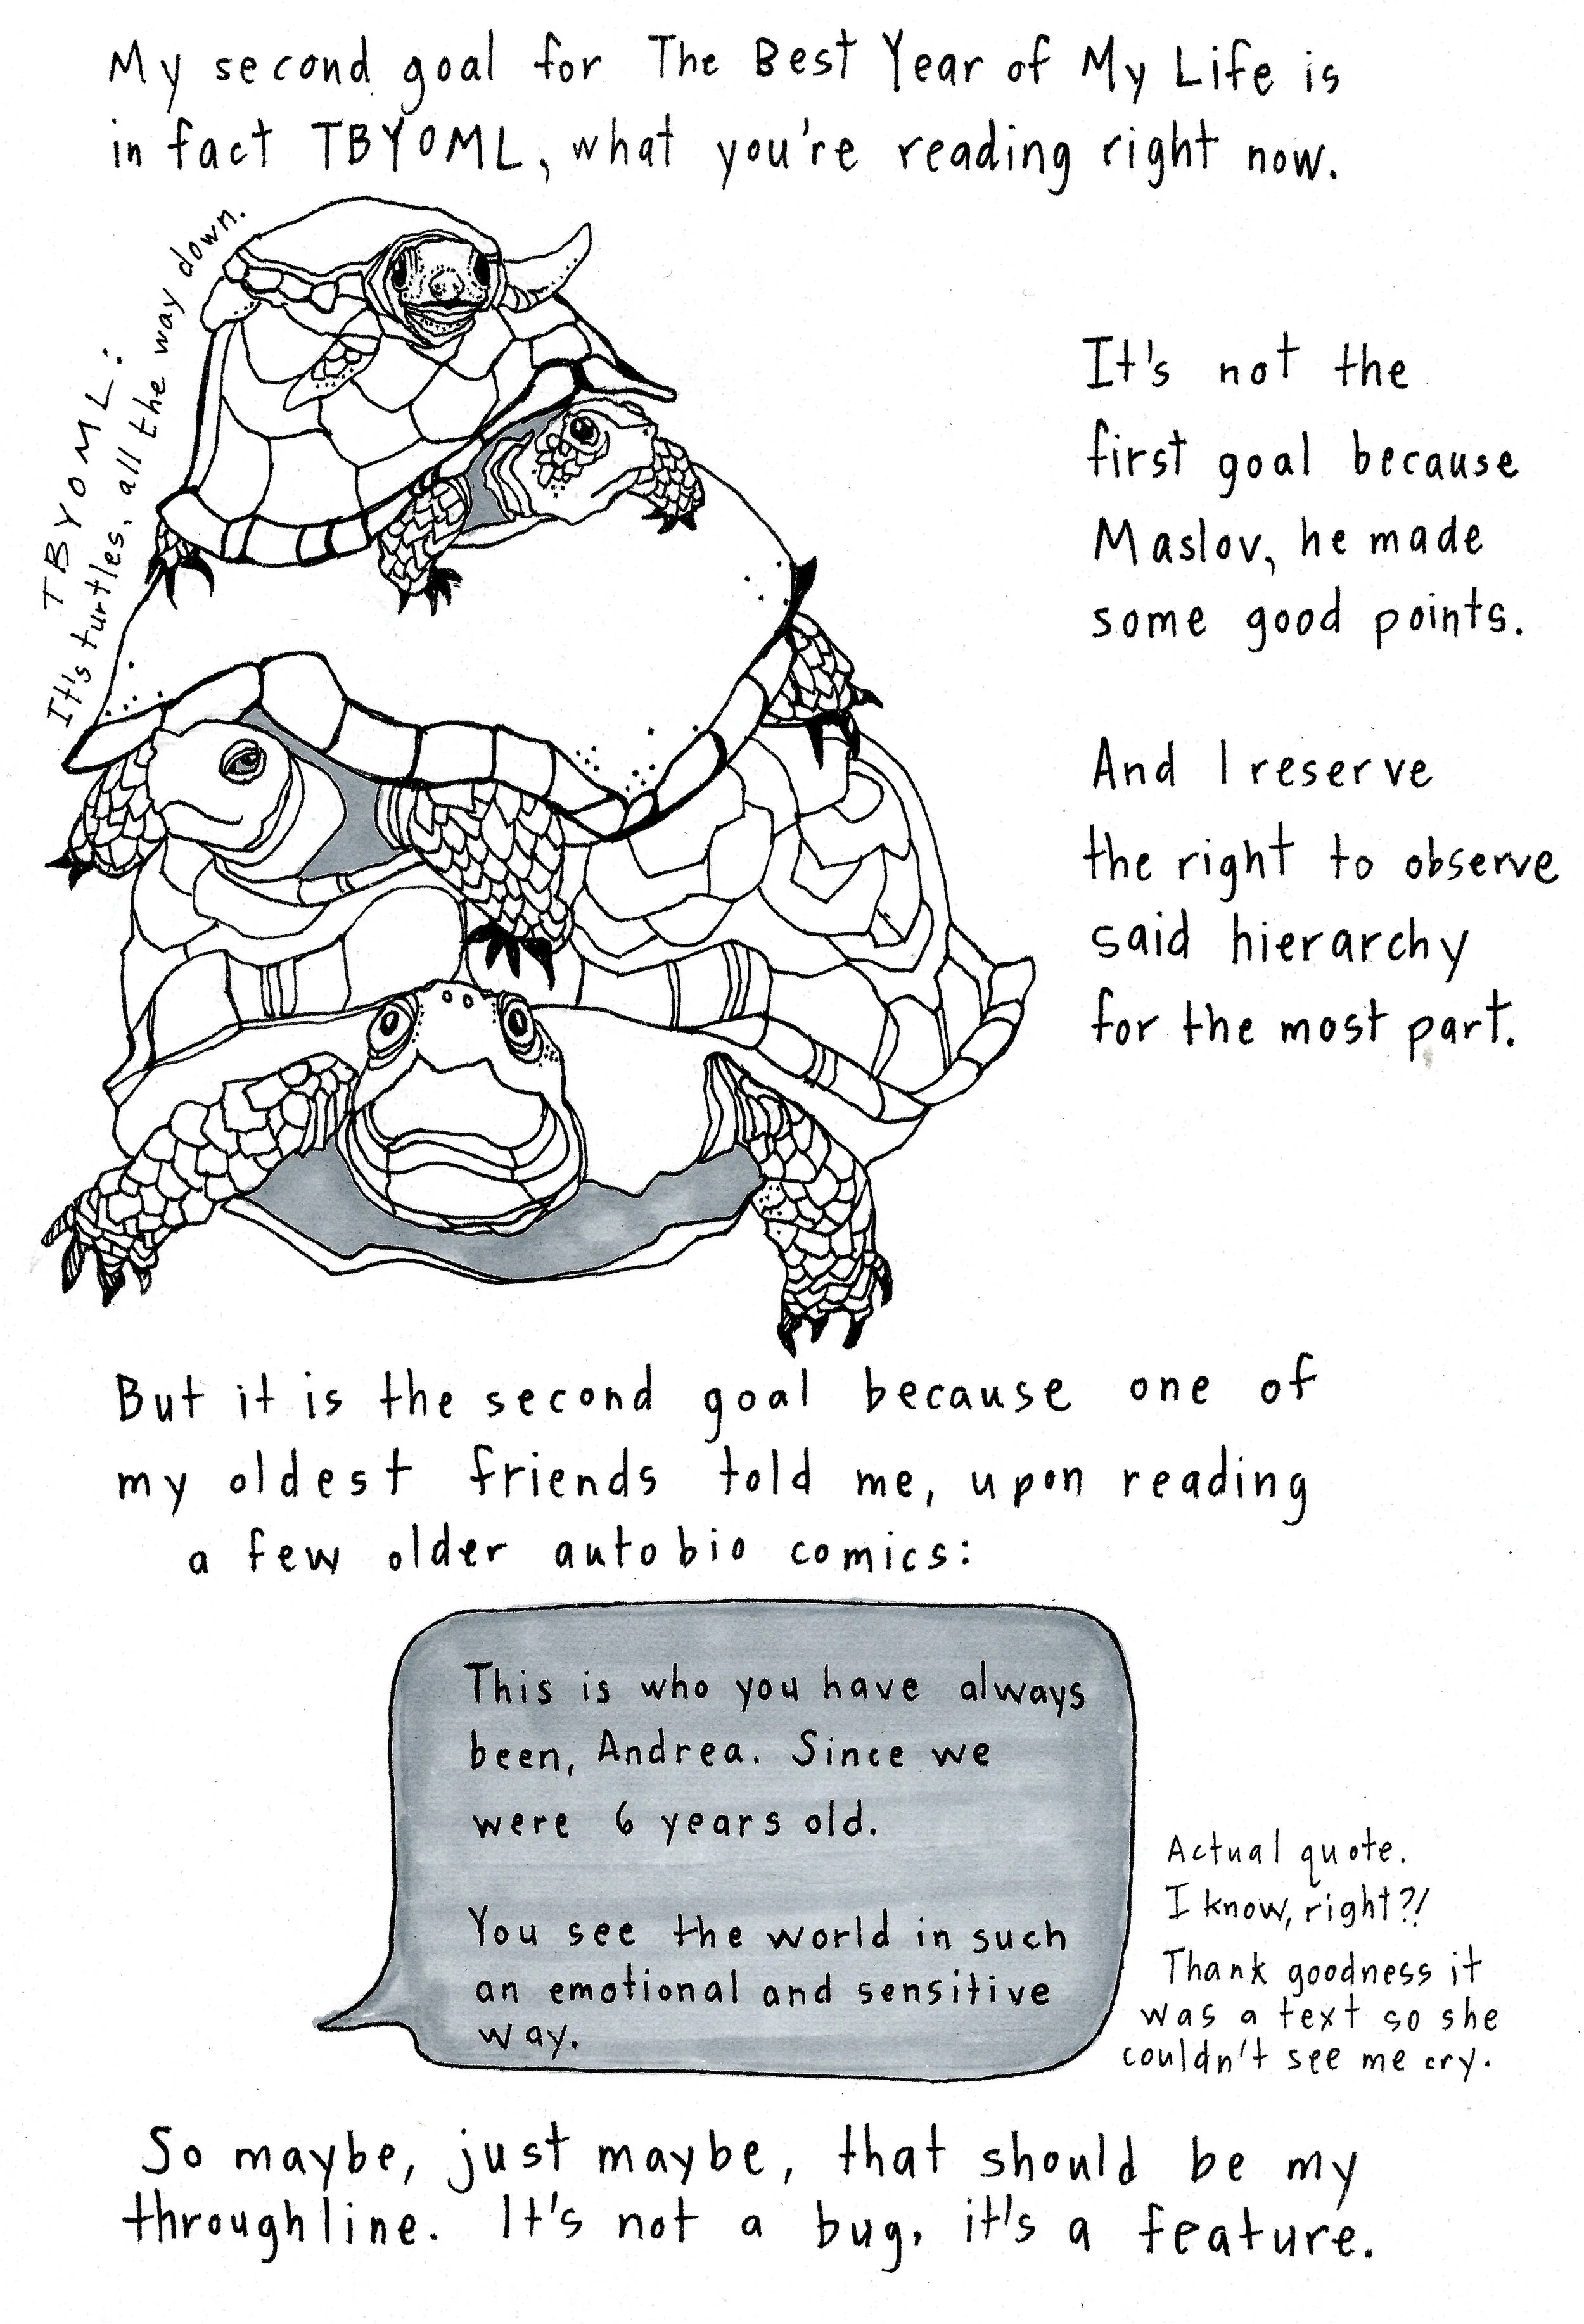 My second goal for The Best Year of My Life is
in fact TBYOML, what you're reading right now.
TBYOML:
It's turtles, all the way down.
It's not the
first goal because
Maslov, he made
some good points.
And I reserve
the right to observe
said hierarchy
for the most part.
But it is the second goal because one of
my oldest friends told me, upon reading
a few older autobio comics:
This is who you have always
been, Andrea. Since we
were 6 years old.
You see the world in such
an emotional and sensitive
way.
Actual quote.
I know, right?!
Thank goodness it
was a text so she
couldn't see me cry.
So maybe, just maybe, that should be my
throughline. It's not a bug, it's a feature.